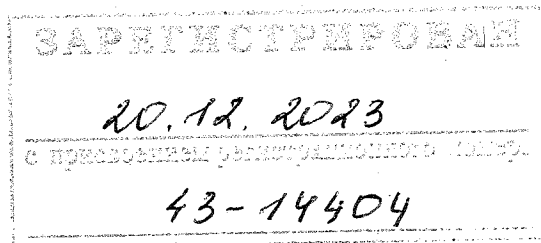 ЗАРЕГИСТРИРОВАН
20.12.2023
с присвоением регистрационного номера
43-14404